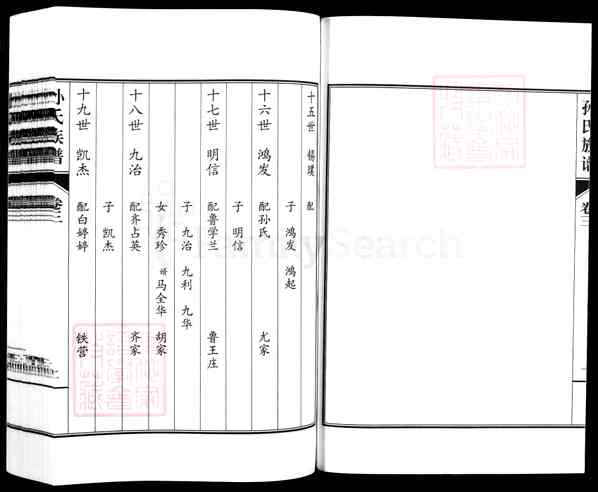 孙氏族谱 卷三
十五世 锡璞 配
子 鸿发 鸿起
十六世 鸿发 配孙氏 尤家
子 明信
十七世 明信 配鲁学兰 鲁王庄
子 九治 九利 九华
女 秀珍 婿马全华 胡家
十八世 九治 配齐占英 齐家
子 凯杰
十九世 凯杰 配白婷婷 铁营
孙氏族谱 卷三
FamilySearch